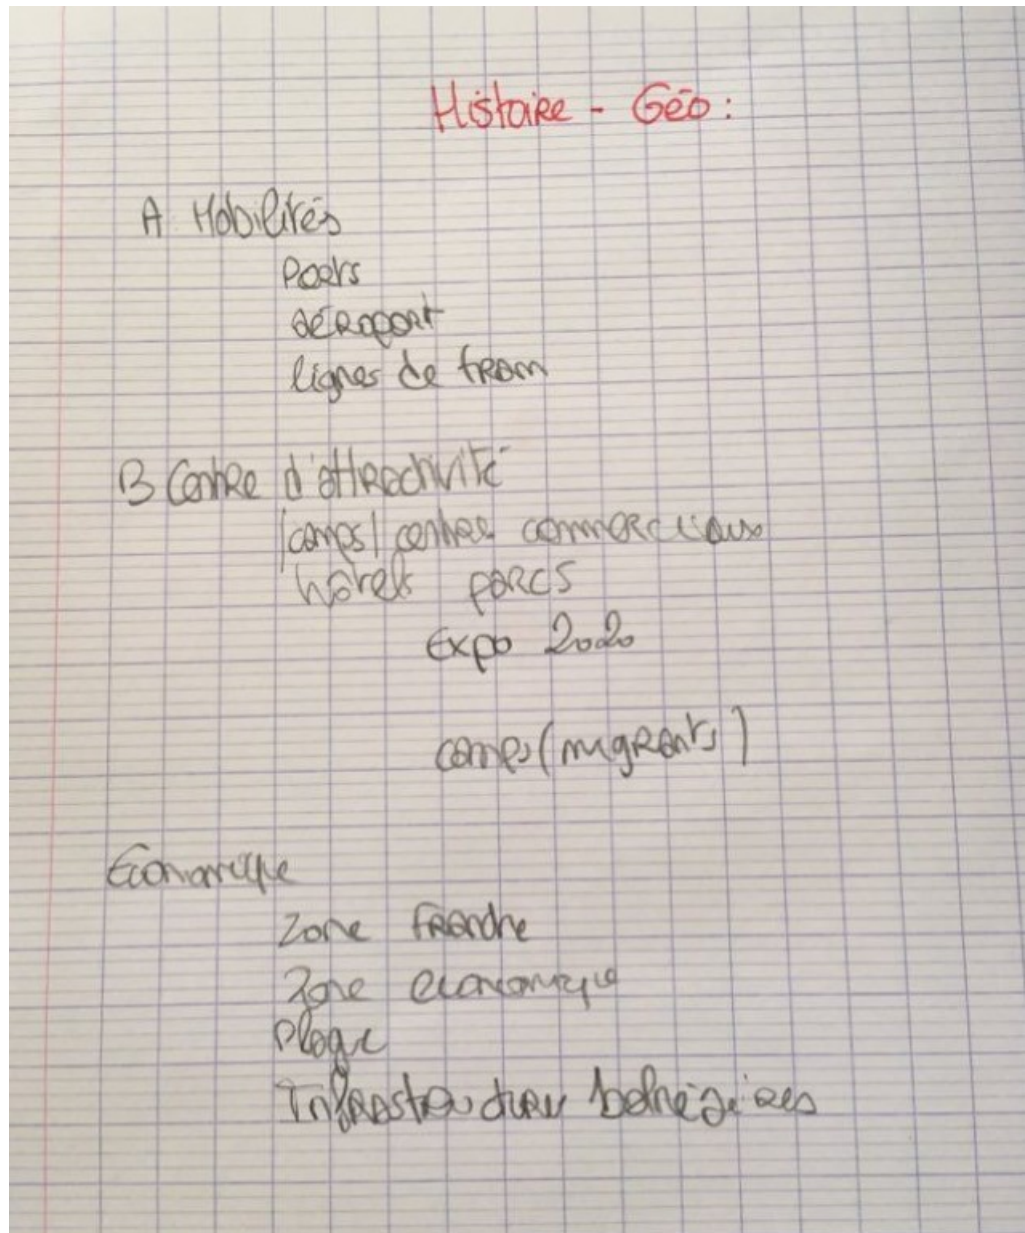 Histoire - Géo :
A Mobilités
Ports
aéroport
lignes de tram
B Centre d'attractivité
|camps| centres commerciaux
hôtels parcs
Expo 2020
camps (migrants)
Economique
Zone franche
Zone economique
Plage
Infrastructures